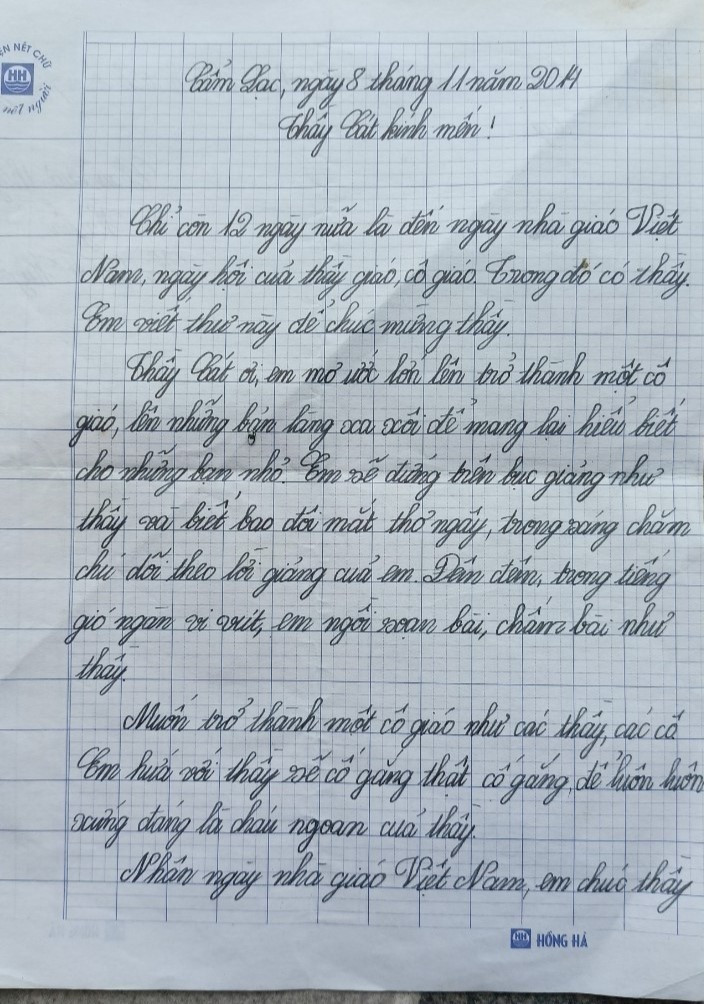 ỆN NẾT CHỮ
HH
nết người
Cẩm Lạc, ngày 8 tháng 11 năm 2014
Thầy Cát kính mến!
Chỉ còn 12 ngày nữa là đến ngày nhà giáo Việt
Nam, ngày hội của thầy giáo, cô giáo. Trong đó có thầy.
Em viết thư này để chúc mừng thầy.
Thầy Cát ơi, em mơ ước lớn lên trở thành một cô
giáo, lên những bản làng xa xôi để mang lại hiểu biết
cho những bạn nhỏ. Em sẽ đứng trên bục giảng như
thầy và biết bao đôi mắt thơ ngây, trong sáng chăm
chú dõi theo lời giảng của em. Đến đêm, trong tiếng
gió ngàn vi vút, em ngồi soạn bài, chấm bài như
thầy.
Muốn trở thành một cô giáo như các thầy, các cô
Em hứa với thầy sẽ cố gắng thật cố gắng, để luôn luôn
xứng đáng là cháu ngoan của thầy.
Nhân ngày nhà giáo Việt Nam, em chúc thầy
HH HỒNG HÀ